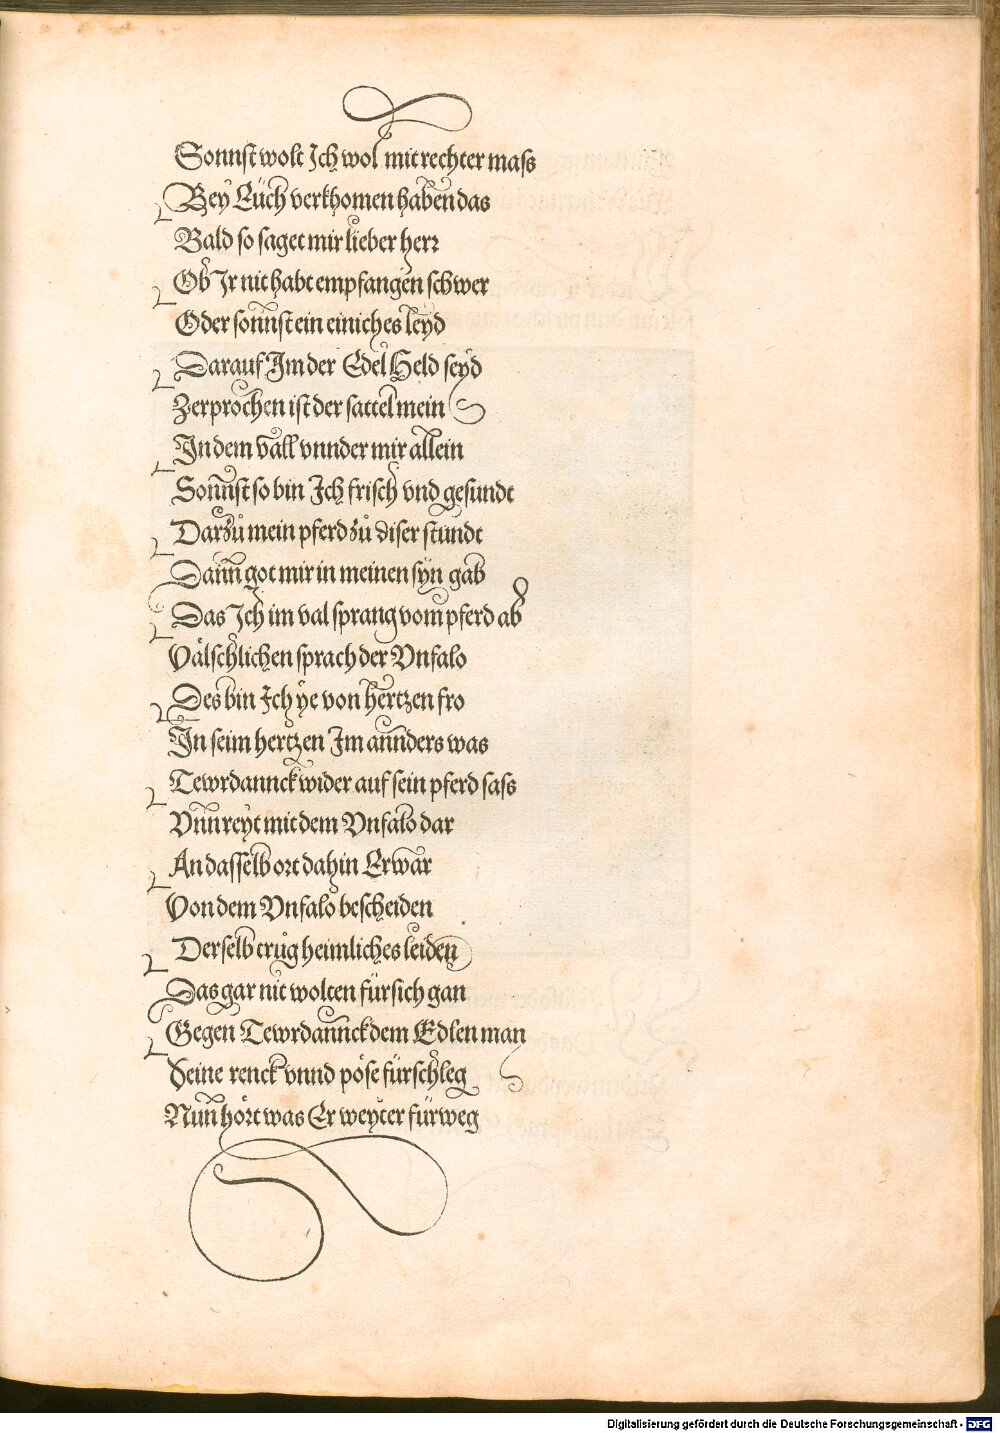 Sonnst wolt Ich wol mit rechter mass
Bey Eüch verkhomen haben das
Bald so saget mir lieber herr
Ob Ir nit habt empfangen schwer
Oder sonnst ein einiches leyd
Darauf Im der Edel Held seyd
Zerprochen ist der sattel mein
In dem vall vnnder mir allein
Sonnst so bin Ich frisch vnd gesundt
Darzů mein pferd zů diser stundt
Dann got mir in meinen syn gab
Das Ich im val sprang vom pferd ab
Välschlichen sprach der Vnfalo
Des bin Ich ye von hertzen fro
In seim hertzen Im annders was
Tewrdannck wider auf sein pferd sass
Vnn reyt mit dem Vnfalo dar
An dasselb ort dahin Er war
Von dem Vnfalo bescheiden
Derselb trůg heimliches leiden
Das gar nit wolten für sich gan
Gegen Tewrdannck dem Edlen man
Seine renck vnnd pöse fürschleg
Nun hört was Er weyter für weg
Digitalisierung gefördert durch die Deutsche Forschungsgemeinschaft - DFG